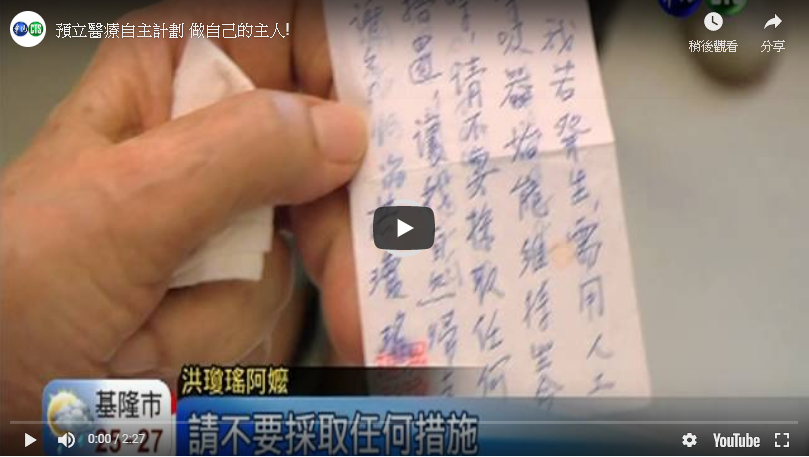 華視 CTS
預立醫療自主計劃 做自己的主人!
稍後觀看
分享
CTS
我若發生,需用人工
吸器始能維持生命
,請不要採取任何
措置,讓我自然歸
謝
瓊瑤
洪瓊瑤阿嬤
基隆市
25-27
請不要採取任何措施
0:00 / 2:27
YouTube